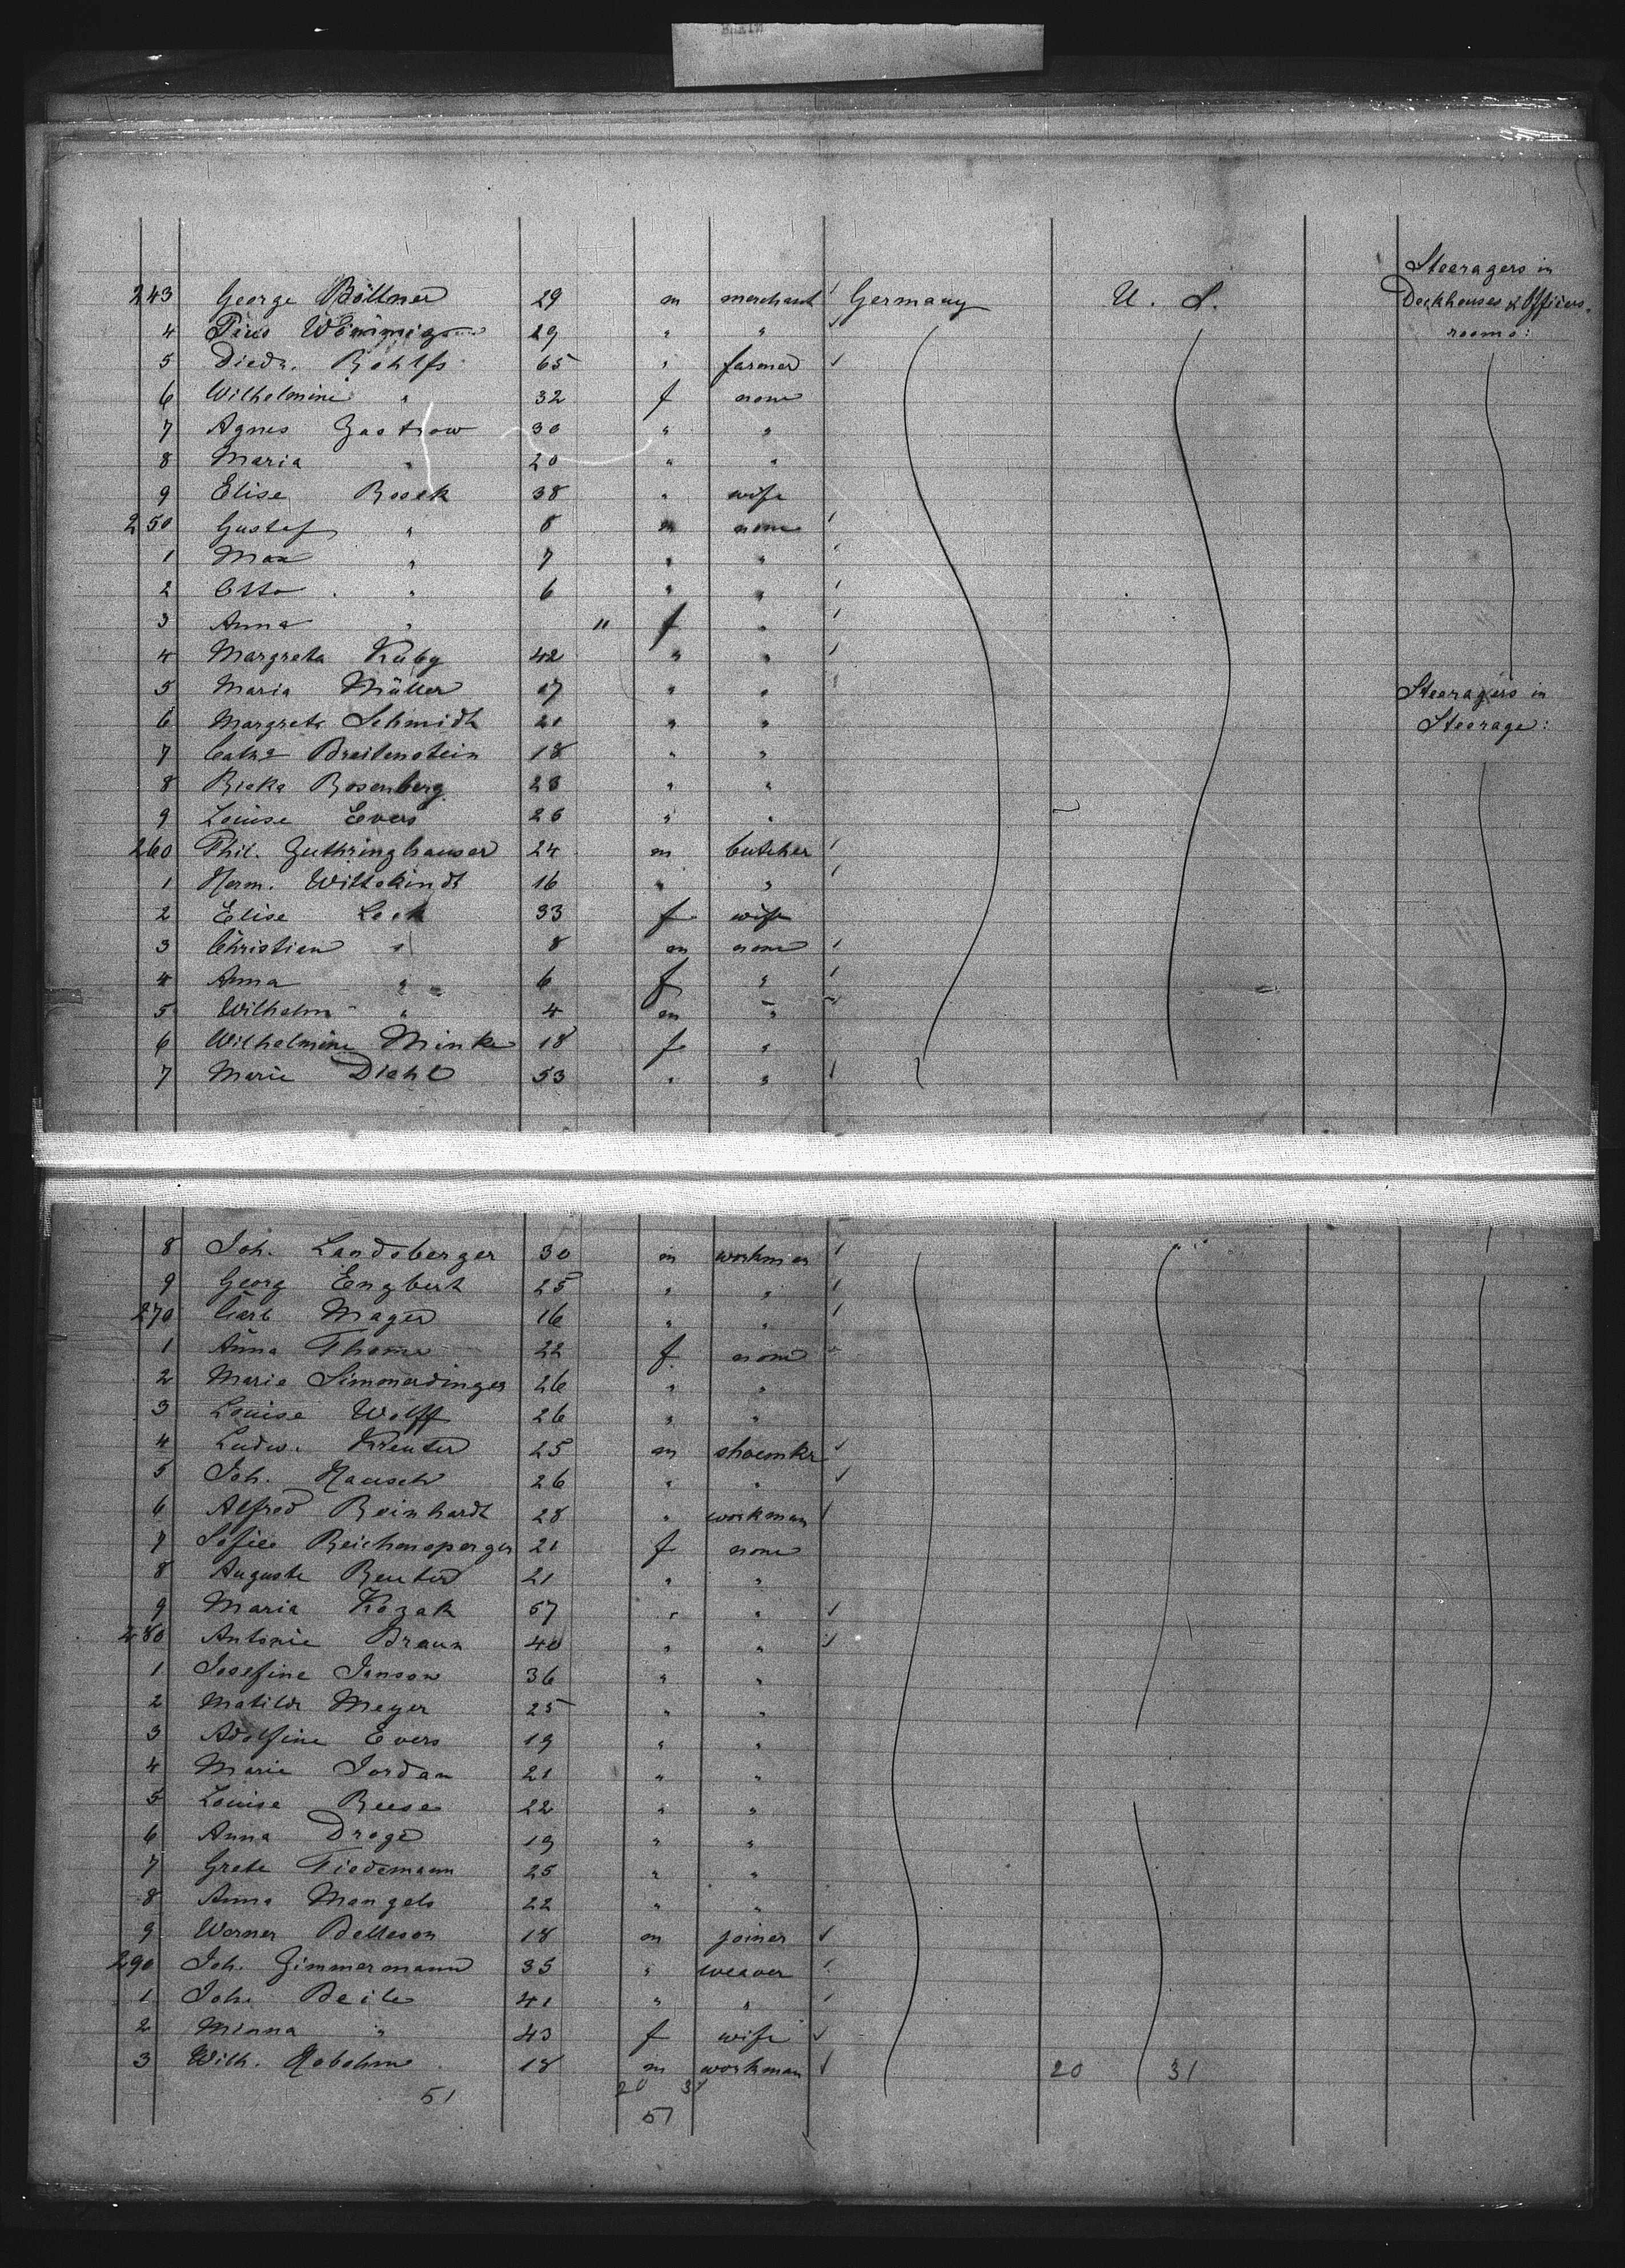 Steeragers in
243 George Böttner 29 m merchant Germany U. S. Deckhouses & Officers
4 Pius 29 " " rooms:
5 Diedr. Rohlfs 65 " farmer
6 Wilhelmine " 32 f none
7 Agnes Zastrow 30 " "
8 Maria " 20 " "
9 Elise Boeck 38 " wife
250 Gustaf " 8 m none
1 Max " 7 " "
2 Otto " 6 " "
3 Anna " 11 f "
4 Margreta Kuby 42 " "
5 Maria Müller 17 " " Steeragers in
6 Margreta Schmidt 21 " " Steerage:
7 Breitenstein 18 " "
8 Rieka Rosenberg 23 " "
9 Louise Evers 26 " "
260 Phil. Guthringhauser 24 m butcher
1 Herm. Wittekindt 16 " "
2 Elise 33 f wife
3 Christian " 8 m none
4 Anna " 6 f "
5 Wilhelm " 4 m "
6 Wilhelmine Minke 18 f "
7 Marie Diehl 53 " "
8 Joh. Landsberger 30 m workman
9 Georg Engbert 25 " "
270 Carl Mager 16 " "
1 Anna Thoma 22 f none
2 Marie Simmerdinger 26 " "
3 Louise Wolff 26 " "
4 Ludw. Kreuter 25 m shoemkr
5 Joh. Hausch 26 " "
6 Alfred Reinhardt 28 " workman
7 Sofie Reichensperger 21 f none
8 Auguste Reuter 21 " "
9 Maria Kozak 57 " "
280 Antonie Braun 40 " "
1 Josefine Janson 36 " "
2 Matilde Meyer 25 " "
3 Adolfine Evers 19 " "
4 Marie Jordan 21 " "
5 Louise Reese 22 " "
6 Anna Droge 19 " "
7 Grete Tiedemann 25 " "
8 Anna Mangels 22 " "
9 Werner Betteson 18 m joiner
290 Joh. Zimmermann 35 " weaver
1 Joh. Beile 41 " "
2 Minna " 43 f wife
3 Wilh. 18 m workman 20 31
51 20 31
51